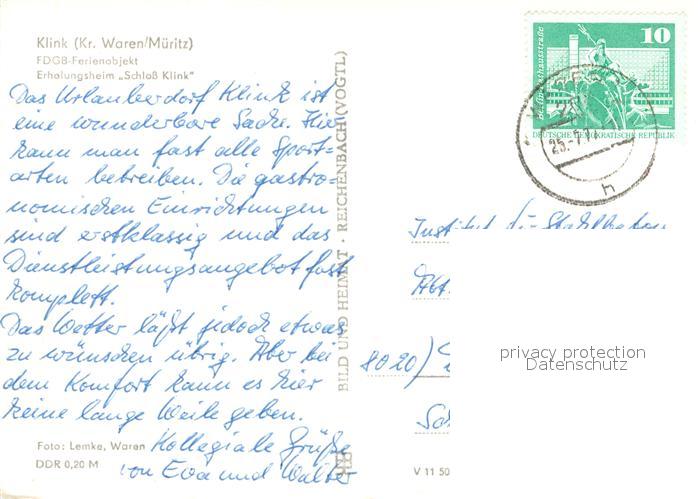 Klink (Kr. Waren/Müritz)
FDGB-Ferienobjekt
Erholungsheim „Schloß Klink"
Das Urlauberdorf Klink ist
eine wunderbare Sache. Hier
kann man fast alle Sport=
arten betreiben. Die gastro=
nomischen Einrichtungen
sind erstklassig und das
Dienstleistungsangebot fast
komplett.
Das Wetter läßt jedoch etwas
zu wünschen übrig. Aber bei
dem Komfort kann es hier
keine lange Weile geben.
Kollegiale Grüße
von Eva und Walter
Foto: Lemke, Waren
DDR 0,20 M
BILD UND HEIMAT · REICHENBACH (VOGTL)
V 11 50
10
DEUTSCHE DEMOKRATISCHE REPUBLIK
25.-7.
h
Institut f.
Abt.
8020
privacy protection
Datenschutz